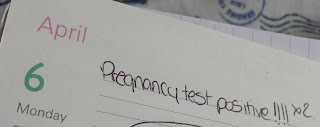 April
6
Monday
Pregnancy test positive!!!! x2.